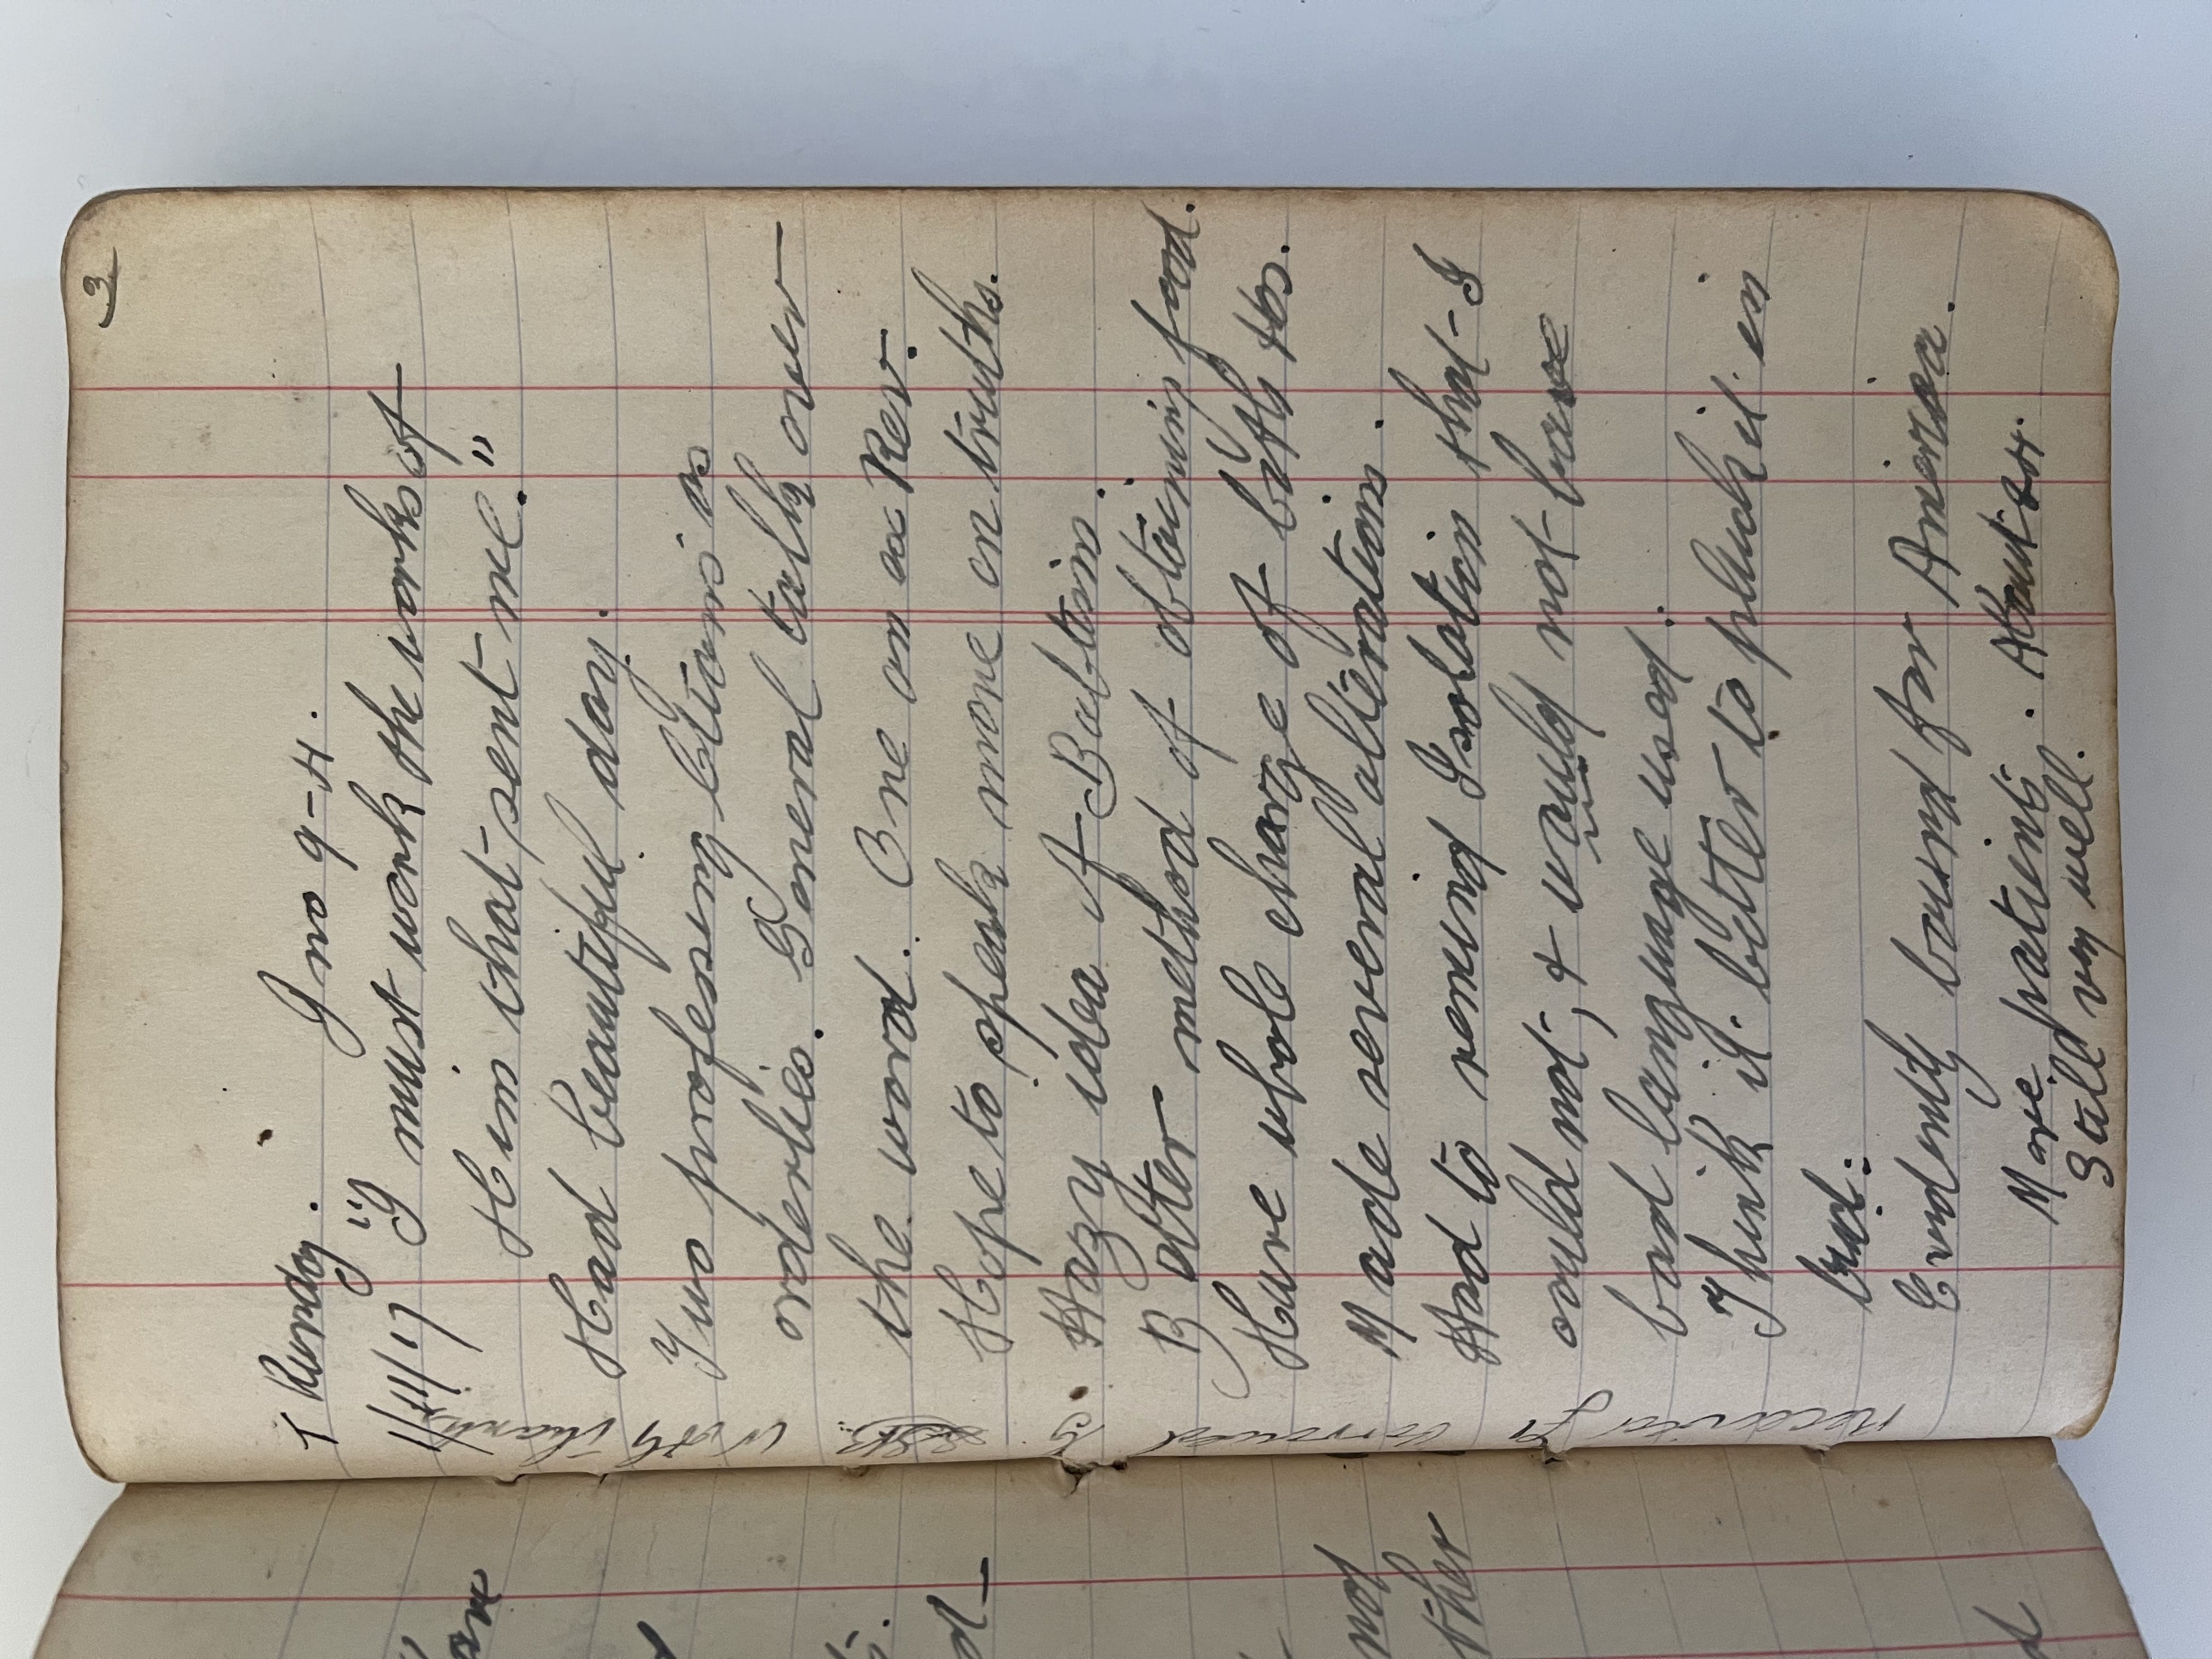 3
Thursday. Jno 9-4.
1/11/17 "I must work the works of
Him that sent me."
Had beautiful day.
Two professing Xtians as
orderlies. General talk over
the word. One an ex Rev.
Hope to speak more on truths.
Hazy idea of Babtism.
Better method of obtaining food.
Have whole charge of bath tps.
Made several alterations.
Had to remind Isolation that I
could not, & would not have
bad language used.
Think it better to pluck it in
bud.
Evidently bound for America.
More patients. About 24.
Still very well.
Received
with thanks
not
other